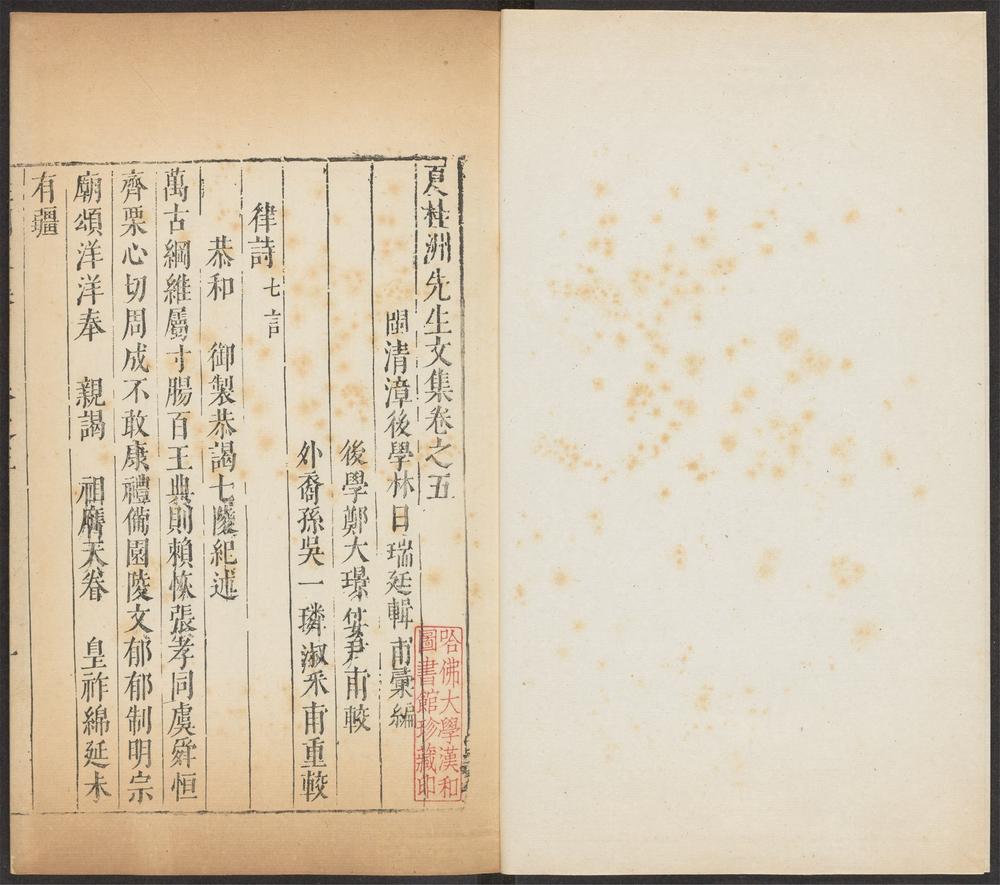 夏桂洲先生文集卷之五
閩清漳後學林日瑞廷輯甫彙編
後學鄭大璟尹甫較
外裔孫吳一璘淑禾甫重較
律詩 七言
恭和 御製恭謁七陵紀述
萬古綱維屬寸腸百王典則賴恢張孝同虞舜恒
齊栗心切周成不敢康禮備園陵文郁郁制明宗
廟頌洋洋奉 親謁 祖膺天眷 皇祚綿延未
有疆
哈佛大學漢和
圖書館珍藏印